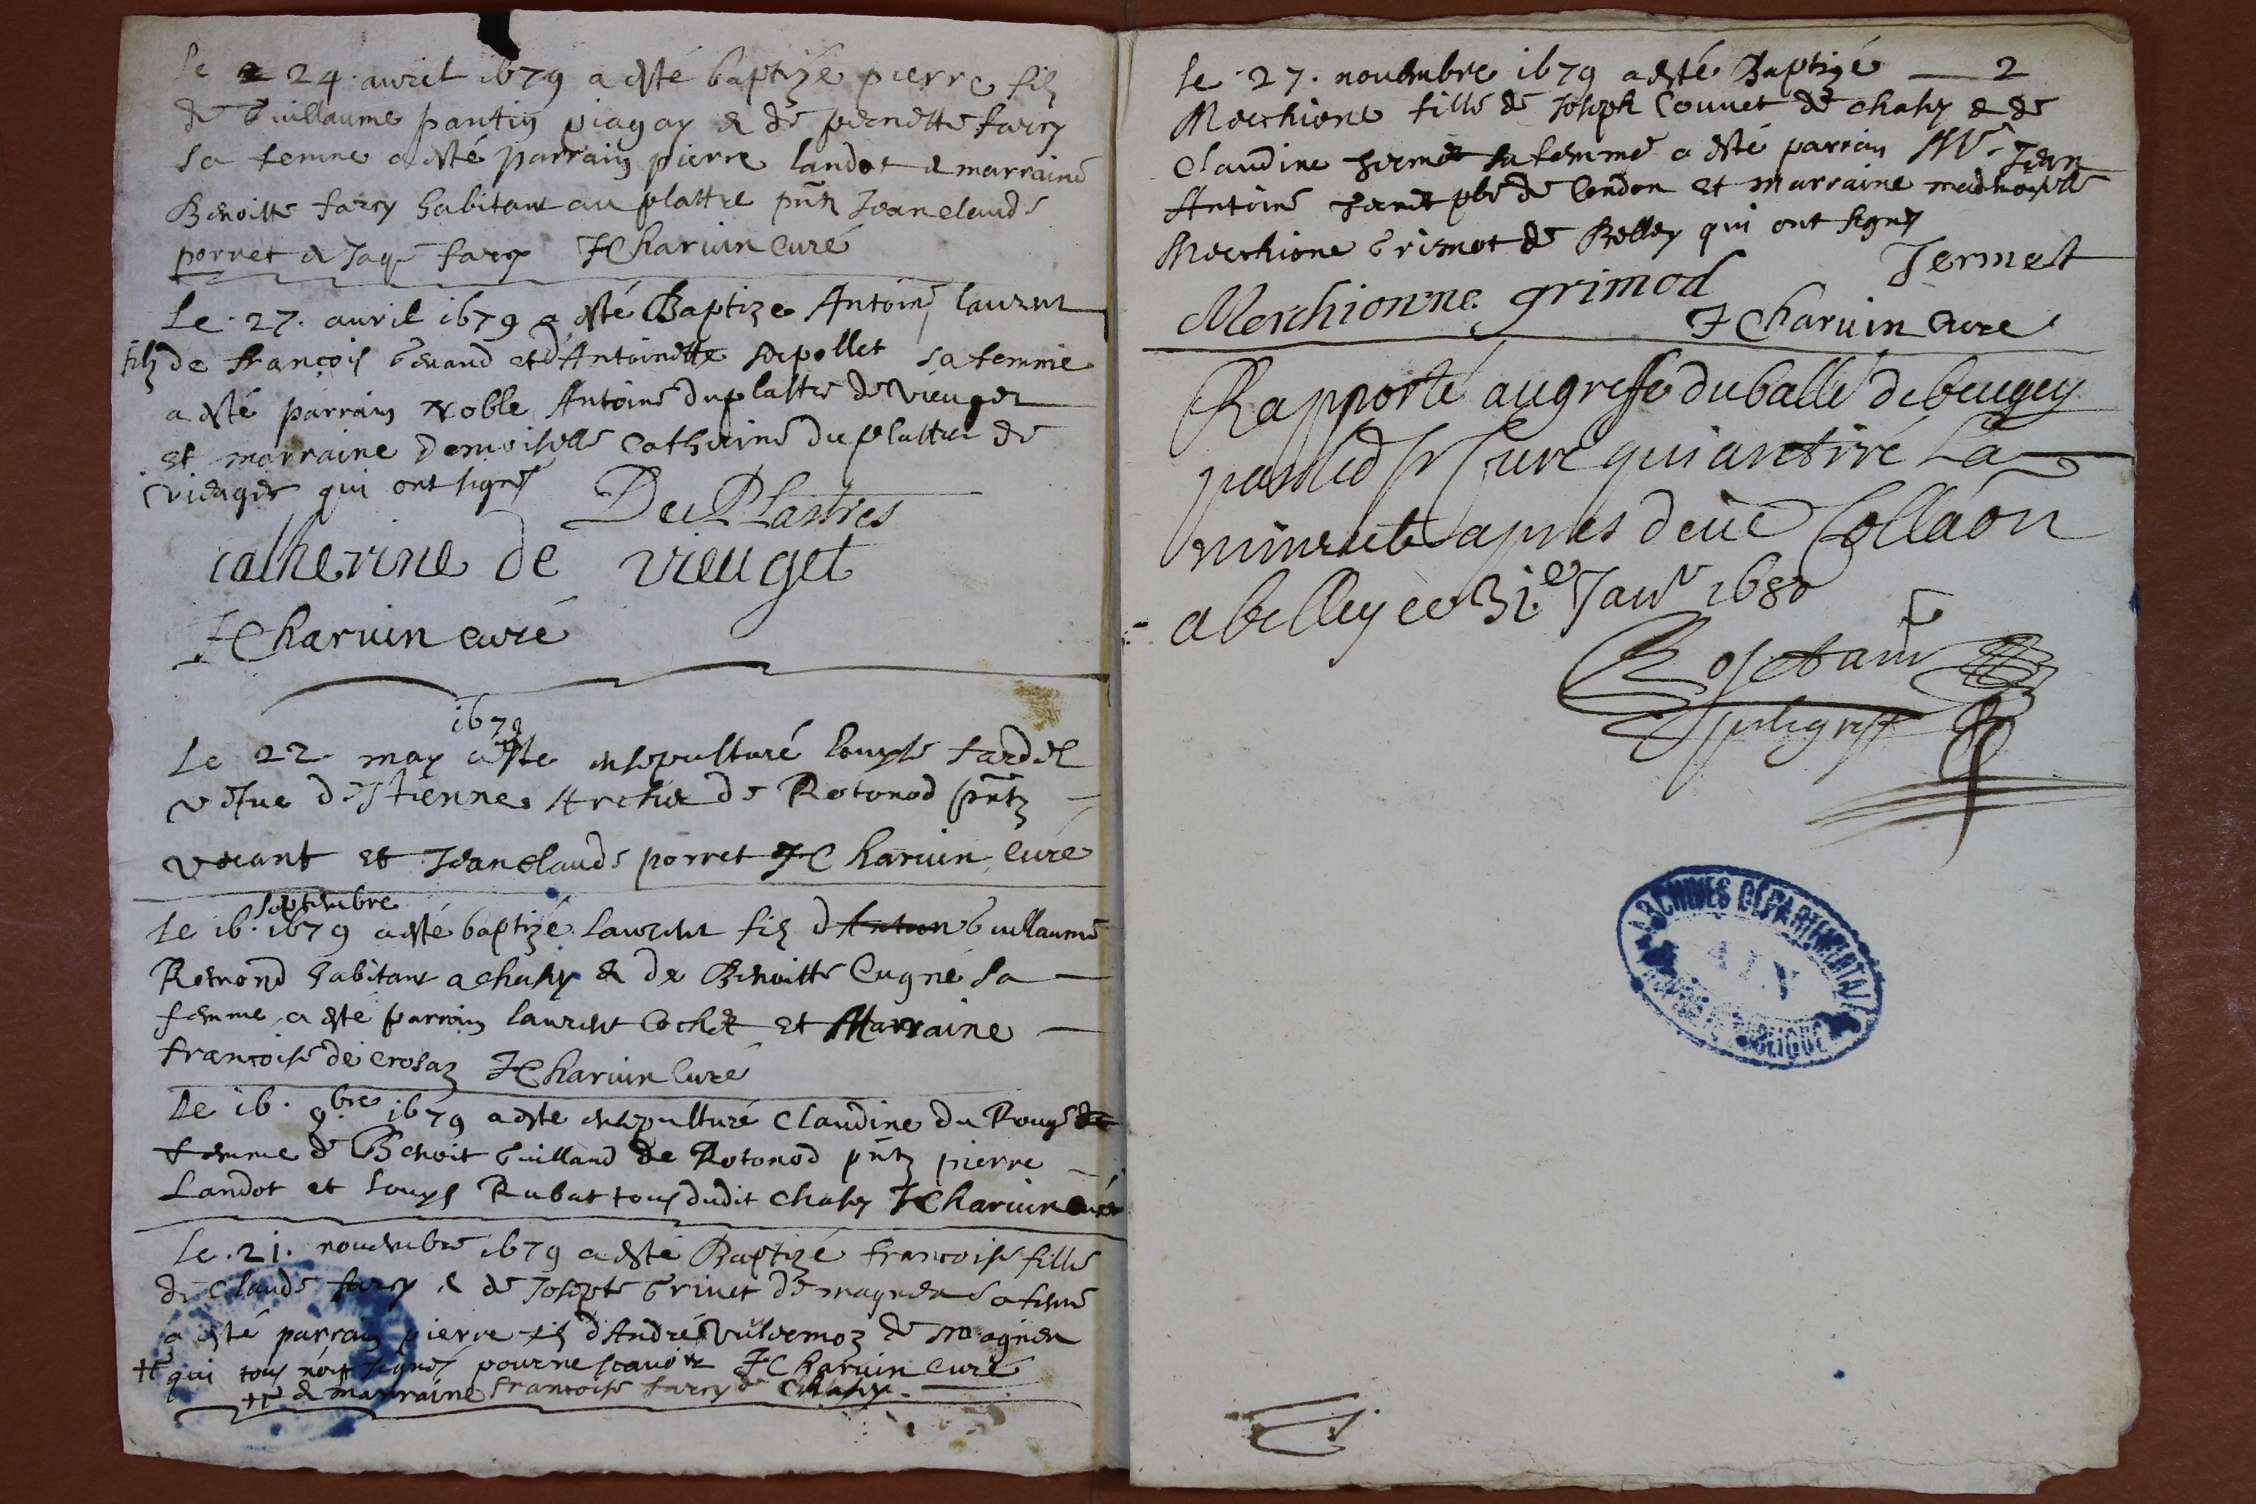 Le 24. avril 1679 a esté baptizé pierre filz
de Guillaume pantin piagay & de pernette farcy
sa femme a esté parrain pierre landot & marraine
Benoitte farcy habitant au plastre pñtz Jean claude
porret & Jaque farcy JCharvin Curé
Le . 27. avril 1679 a esté Baptize Antoine laurent
filz de françois Genand et d'Antoinette sa femme
a esté parrain Noble Antoine duplastre de Vieuget
et marraine Demoiselle Catherine du plastre de
Vieuget qui ont signé
Du PLastres
catherine de vieuget
JCharvin curé
1679
Le 22. may a esté ensepulturé Louyse fardel
vefue d'Estienne Archer de Rotonod pñtz
et Jean Claude porret JCharvin Curé
septembre
Le 16. 1679 a esté baptizé Laurent filz d Guillaume
Remond habitant a chasey & de Benoitte Cugne sa
femme a esté parrain laurent Cochet et Marraine
francoise de crosaz JCharvin Curé
Le 16. 9bre 1679 a esté ensepulturé Claudine du Rouge
femme de Benoit Guilland de Rotonod pñtz pierre
Landot et Louys Rubat tous dudit chasey JCharvin curé
Le .21. novembre 1679 a esté Baptizé francoise fille
de Claude farcy & de Josepte Grinet de magnieu sa feme
a esté parrain pierre filz d'André Vuillermoz de magnieu
qui tous nõt signé pour ne scavoir JCharvin Curé
& marraine francoise farcy de chasey.
Le . 27. novembre 1679 a esté Baptizé 2
Merchione fille de Joseph Couvet de chasey & de
Claudine Jermet sa femme a esté parrain Mre. Jean
Antoine Jermet pbre de Condon et Marraine madmoiselle
Merchione Grimot de Belley qui ont signé
Jermet
Merchionne grimod
JCharvin Cure
Rapporté au greffe du balle de beugey
par led sr Cure qui a retiré La
minutte apres deue Collãon
a belley ce 31.e Janr 1680
ARCHIVES DÉPARTEMENTALES
AIN